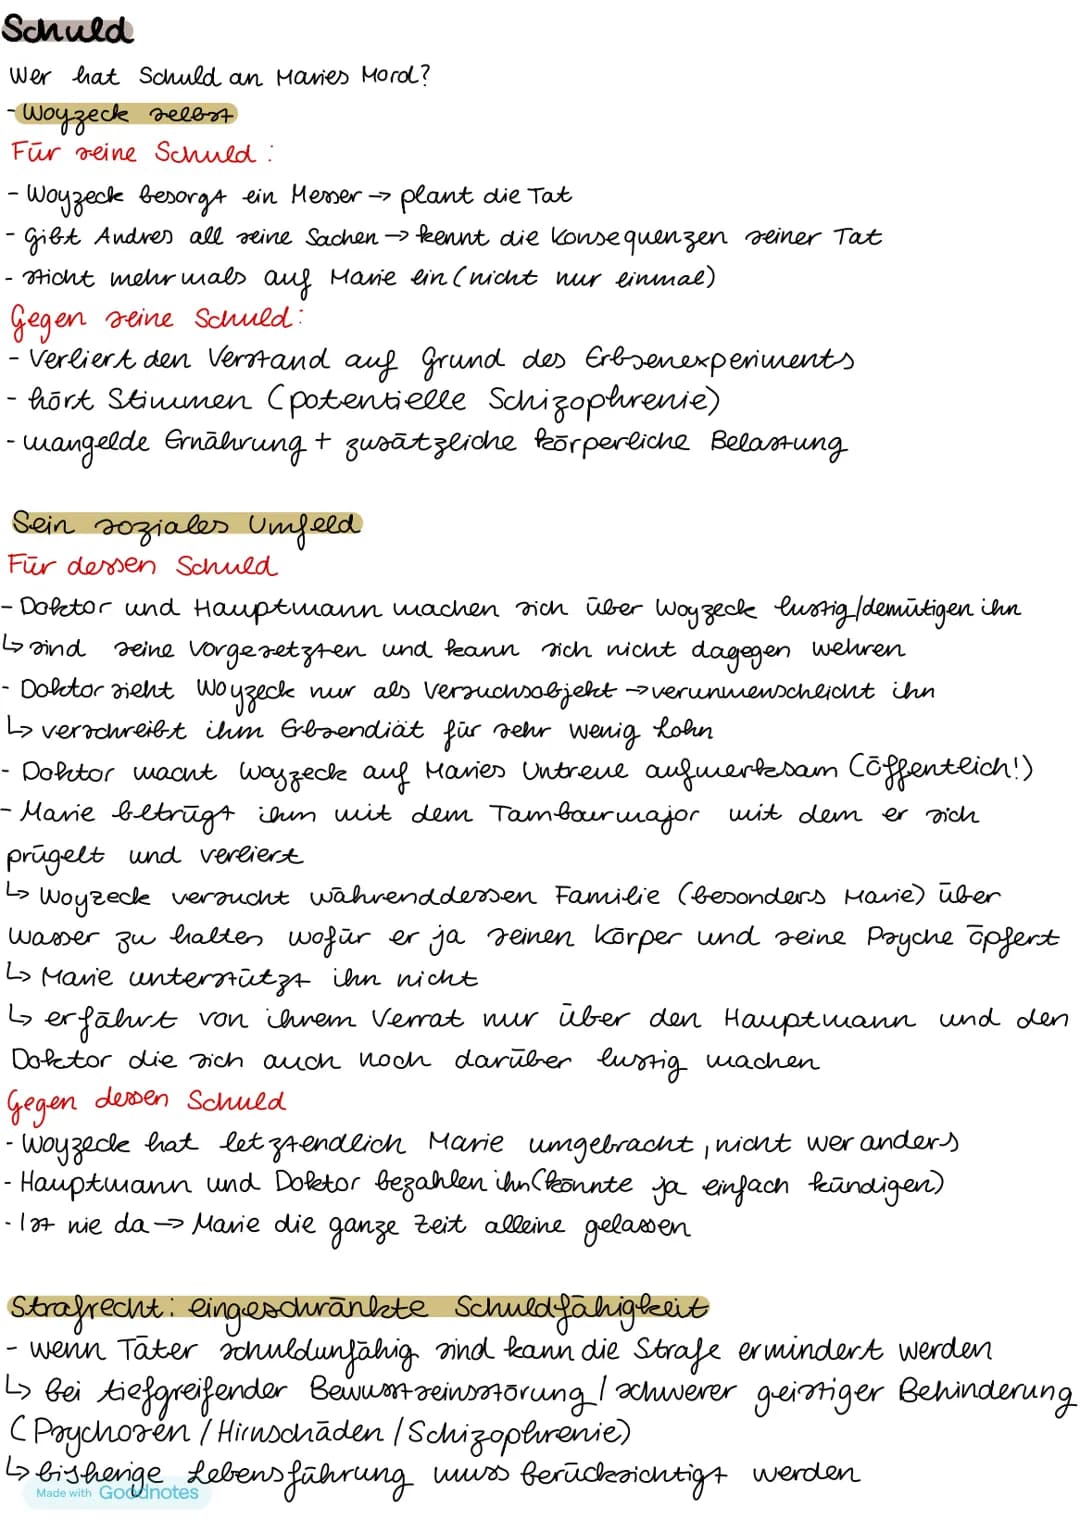 Schuld
Wer hat Schuld an Maries Mord?
- Woyzeck selbst
Für seine Schuld:
- Woyzeck besorgt ein Messer → plant die Tat
- Gibt Andres all seine Sachen → kennt die Konsequenzen seiner Tat
- sticht mehrmals auf Marie ein (nicht nur einmal)
Gegen seine Schuld:
- Verliert den Verstand auf Grund des Erbsenexperiments
- hört Stimmen (potentielle Schizophrenie)
- mangelde Ernährung + zusätzliche körperliche Belastung
Sein soziales Umfeld
Für dessen Schuld
- Doktor und Hauptmann machen sich über Woyzeck lustig/demütigen ihn
↳ sind seine Vorgesetzten und kann sich nicht dagegen wehren
- Doktor sieht Woyzeck nur als Versuchsobjekt → verunmenschlicht ihn
↳ verschreibt ihm Erbsendiät für sehr wenig Lohn
- Doktor macht Woyzeck auf Maries Untreue aufmerksam (öffentlich!)
- Marie betrügt ihm mit dem Tambourmajor mit dem er sich
prügelt und verliert
↳ Woyzeck versucht währenddessen Familie (besonders Marie) über
Wasser zu halten wofür er ja seinen Körper und seine Psyche öpfert
↳ Marie unterstützt ihn nicht
↳ erfährt von ihrem Verrat nur über den Hauptmann und den
Doktor die sich auch noch darüber lustig machen
Gegen dessen Schuld
- Woyzeck hat letztendlich Marie umgebracht, nicht wer anders
- Hauptmann und Doktor bezahlen ihn (könnte ja einfach kündigen)
- Ist nie da → Marie die ganze Zeit alleine gelassen
Strafrecht: eingeschränkte Schuldfähigkeit
- wenn Täter schuldunfähig sind kann die Strafe ermindert werden
↳ Bei tiefgreifender Bewusstseinsstörung / schwerer geistiger Behinderung
(Psychosen / Hirnschäden / Schizophrenie)
↳ bisherige Lebensführung muss berücksichtigt werden
Made with Goodnotes